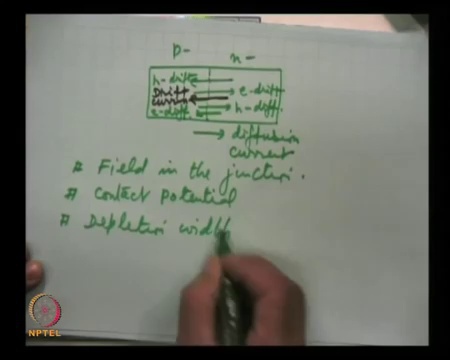 p- n-
h-drift
Drift e-drift
current h-diff.
e-diff
diffusion
current
# Field in the junction.
# Contact potential
# Depletion width
NPTEL